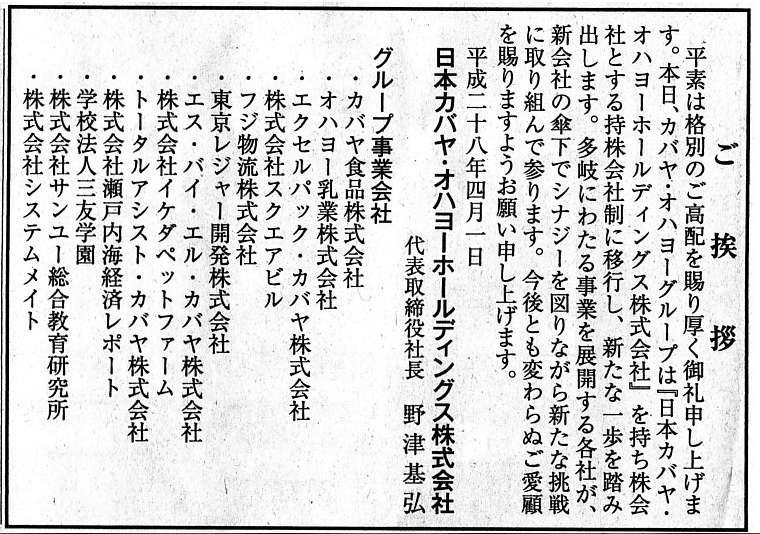 ご挨拶
平素は格別のご高配を賜り厚く御礼申し上げま
す。本日、カバヤ・オハヨーグループは『日本カバヤ・
オハヨーホールディングス株式会社』を持ち株会
社とする持株会社制に移行し、新たな一歩を踏み
出します。多岐にわたる事業を展開する各社が、
新会社の傘下でシナジーを図りながら新たな挑戦
に取り組んで参ります。今後とも変わらぬご愛顧
を賜りますようお願い申し上げます。
平成二十八年四月一日
日本カバヤ・オハヨーホールディングス株式会社
代表取締役社長 野津基弘
グループ事業会社
・カバヤ食品株式会社
・オハヨー乳業株式会社
・エクセルパック・カバヤ株式会社
・株式会社スクエアビル
・フジ物流株式会社
・東京レジャー開発株式会社
・エス・バイ・エル・カバヤ株式会社
・株式会社イケダペットファーム
・トータルアシスト・カバヤ株式会社
・株式会社瀬戸内海経済レポート
・学校法人三友学園
・株式会社サンユー総合教育研究所
・株式会社システムメイト